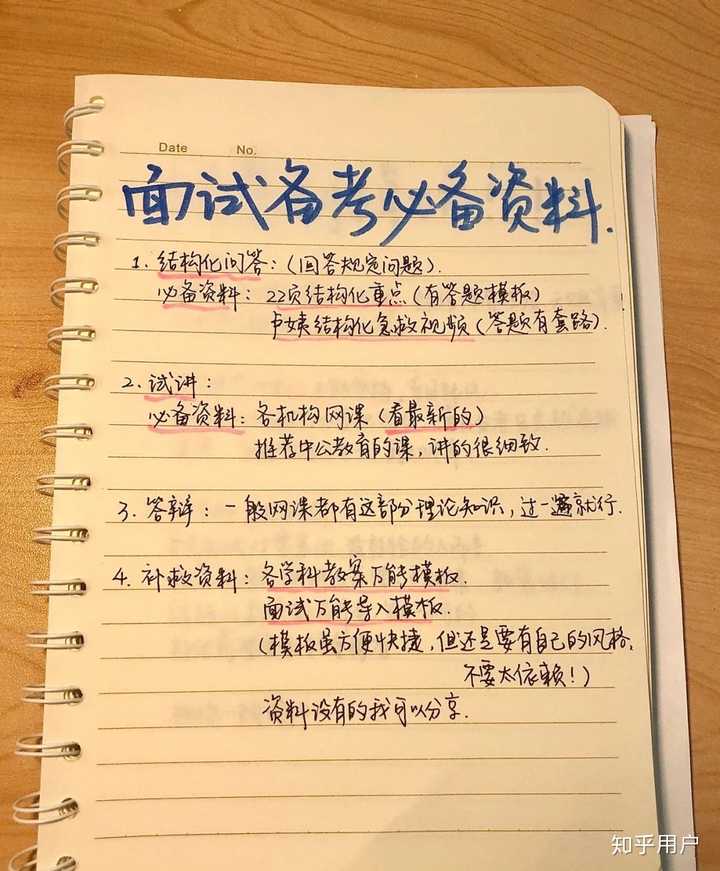 Date No.
面试备考必备资料.
1. 结构化问答:(回答规定问题).
必备资料: 22页结构化重点(有答题模板)
卢姨结构化急救视频(答题有套路).
2. 试讲:
必备资料: 各机构网课(看最新的)
推荐中公教育的课, 讲的很细致.
3. 答辩: 一般网课都有这部分理论知识, 过一遍就行.
4. 补救资料: 各学科教案万能模板.
面试万能导入模板.
(模板虽方便快捷, 但还是要有自己的风格,
不要太依赖!)
资料没有的我可以分享.
知乎用户